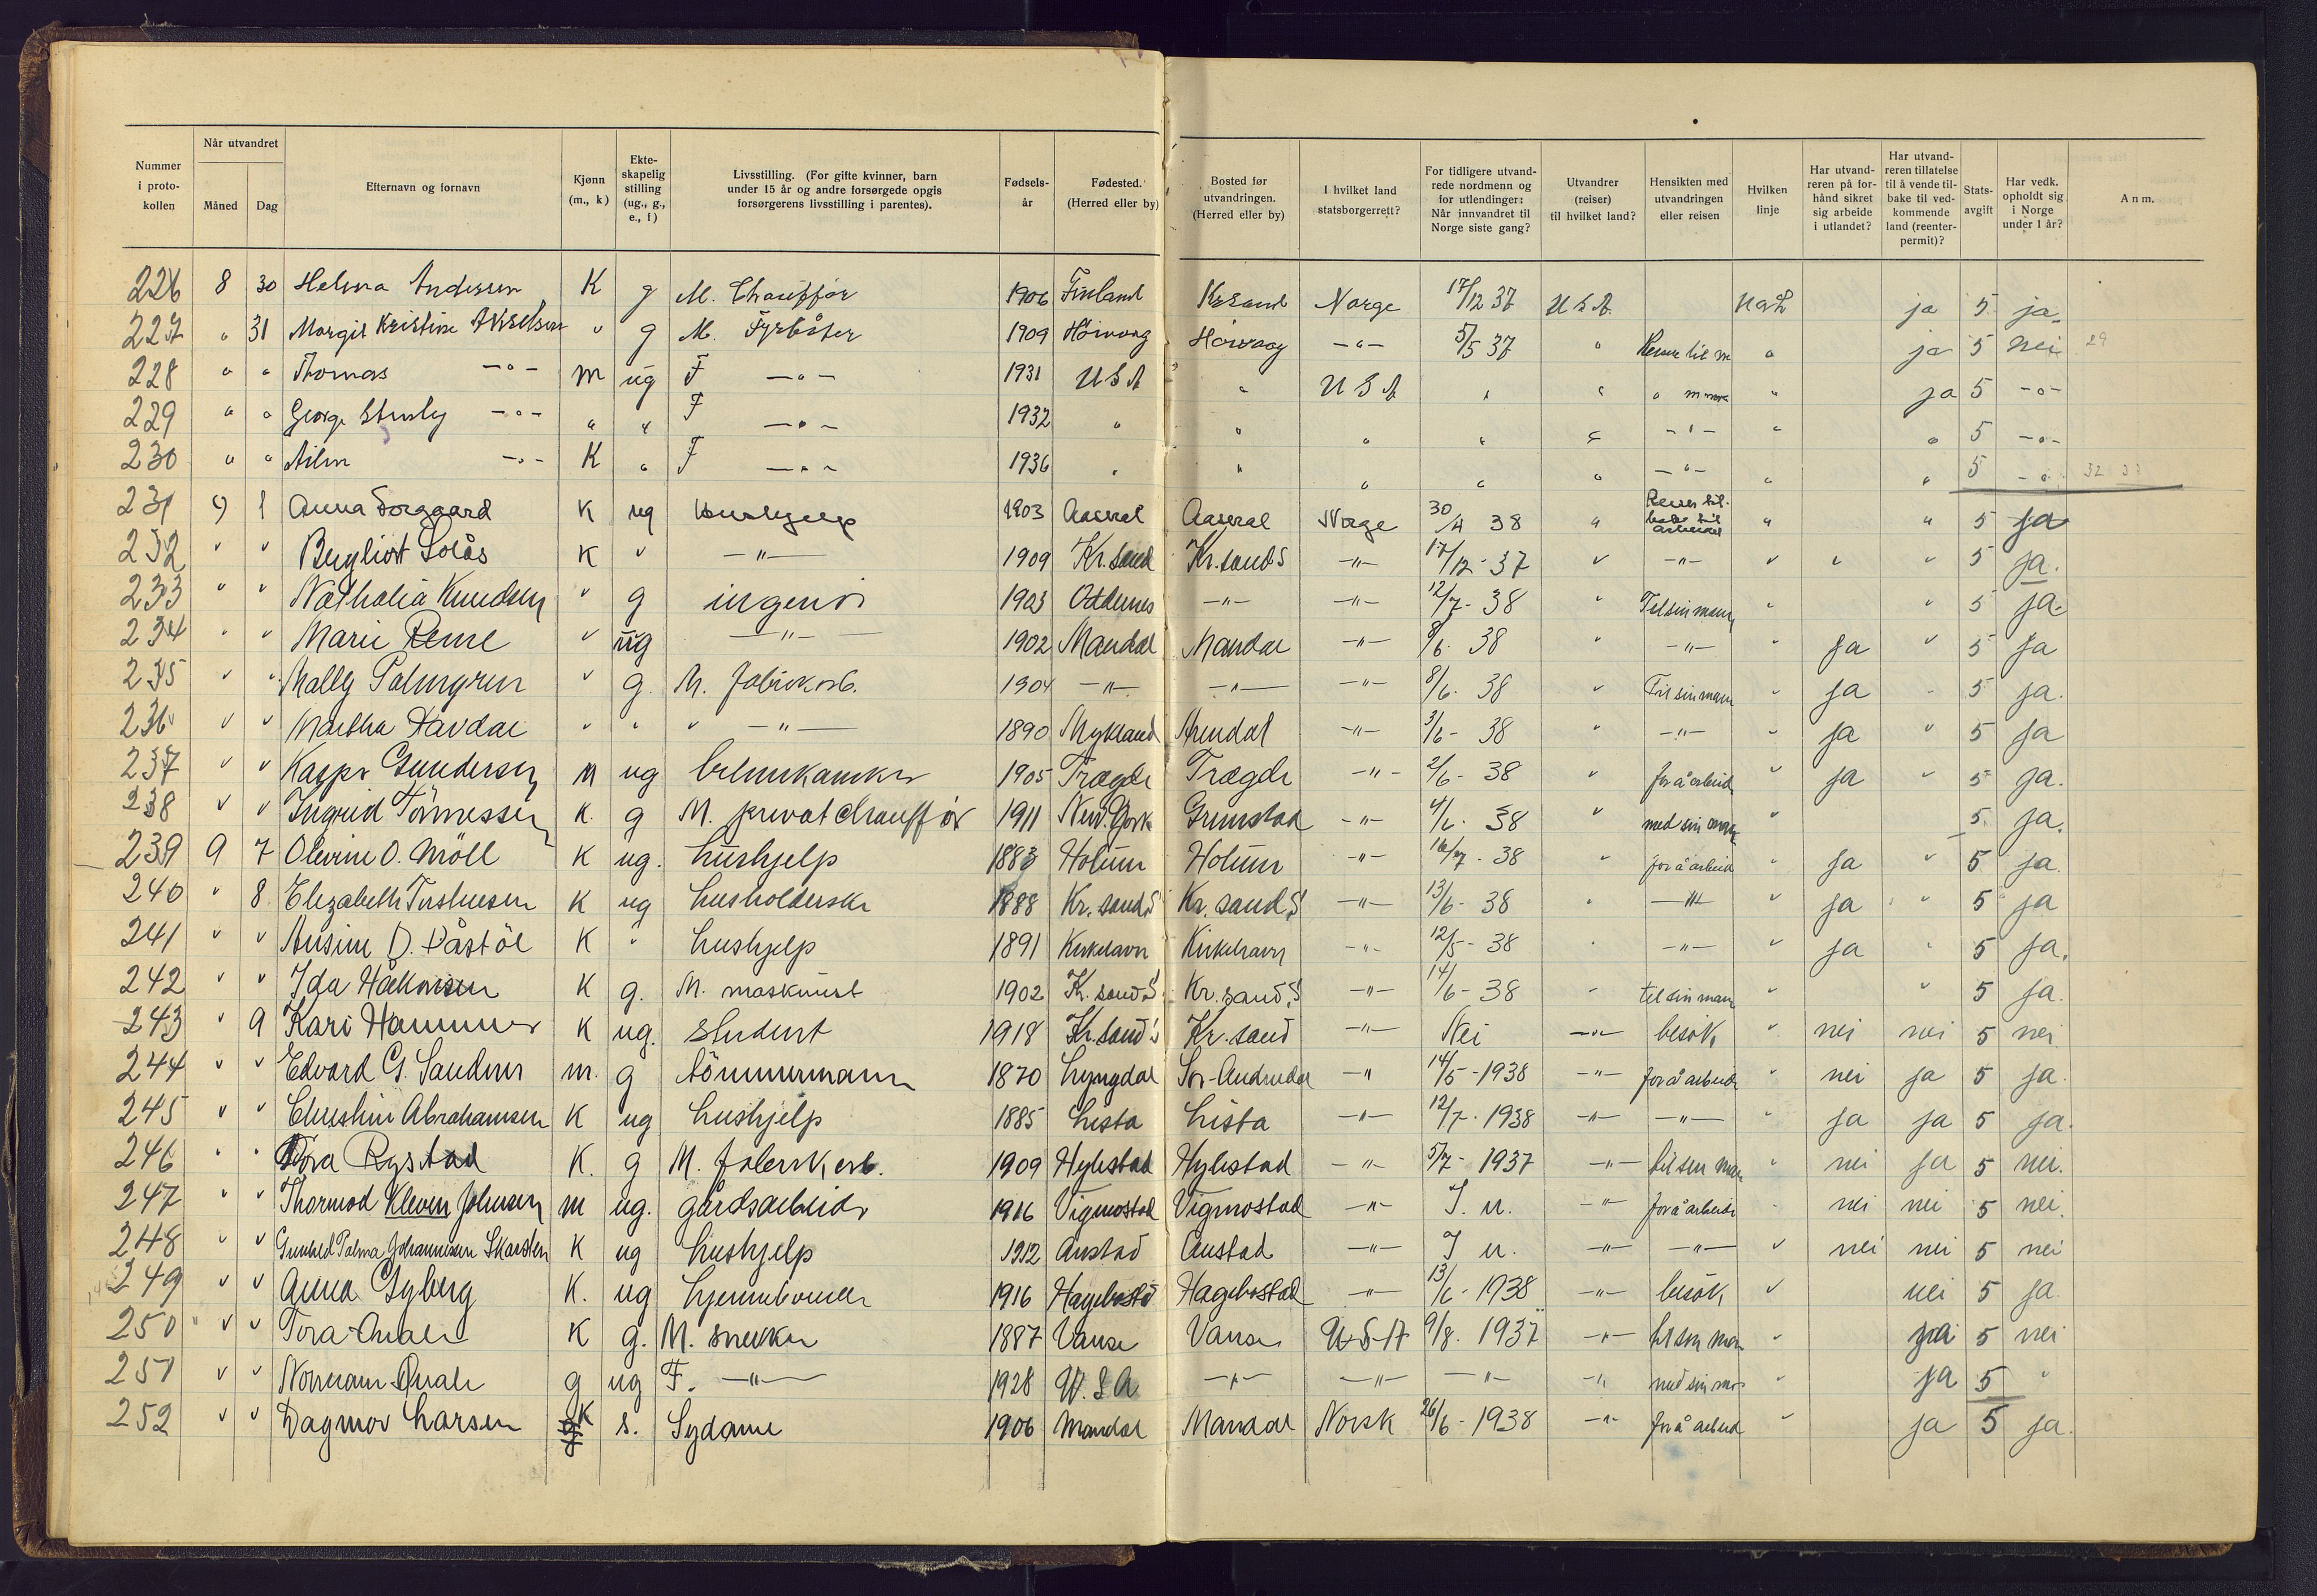 Nummer i protokollen | Når utvandret Måned | Dag | Efternavn og fornavn | Kjønn (m., k) | Ekteskapelig stilling (ug., g., e., f) | Livsstilling. (For gifte kvinner, barn under 15 år og andre forsørgede opgis forsørgerens livsstilling i parentes). | Fødselsår | Fødested. (Herred eller by) | Bosted før utvandringen. (Herred eller by) | I hvilket land statsborgerrett? | For tidligere utvandrede nordmenn og for utlendinger: Når innvandret til Norge siste gang? | Utvandrer (reiser) til hvilket land? | Hensikten med utvandringen eller reisen | Hvilken linje | Har utvandreren på forhånd sikret sig arbeide i utlandet? | Har utvandreren tillatelse til å vende tilbake til vedkommende land (reenterpermit)? | Statsavgift | Har vedk. opholdt sig i Norge under 1 år? | Anm.
226 8 30 Helma Andersen K g M. Chauffør 1906 Finland Krsand Norge 17/12 37 USA NAL ja 5 ja
227 " 31 Margit Kristine Akselsen " g M. Fyrbøter 1909 Høivaag Høivaag -"- 5/5 37 " Reise til m " ja 5 nei 29
228 " " Thomas -"- m ug F -"- 1931 USA " USA " " " " ja 5 -"-
229 " " George -"- " " F -"- 1932 " " " " " -"- " " 5 -"-
230 " " -"- K " F -"- 1936 " " " " " -"- " " 5 -"- 32
231 9 1 Anna K ug Hushjelp 1903 Aaseral Aaseral Norge 30/4 38 " " " 5 ja
232 " " Bergliot Solås K " -"- 1909 Kr.sand Kr.sand S -"- 17/12-37 " -"- " " " 5 ja.
233 " " Nathalia Knudsen " g ingeniør 1903 Oddernes -"- -"- 12/7-38 " Til sin mann " " 5 ja.
234 " " Marie " ug -"- 1902 Mandal Mandal -"- 8/6. 38 " -"- " ja " 5 ja
235 " " Mally Palmgren " g. M. fabrikarb. 1904 -"- -"- -"- 8/6. 38 " Til sin mann " ja " 5 ja.
236 " " Martha Havdal " " " -"- 1890 Mykland Arendal -"- 3/6- 38 " -"- " ja " 5 ja
237 " " Kasper Gundersen M ug bilmekaniker 1905 Trægde Trægde -"- 2/6- 38 " for å arbeide " ja " 5 ja.
238 " " Ingrid Tønnessen K. g M. privatchauffør 1911 New.York Grimstad -"- 4/6. 38 " med sin mann " 5 ja.
239 9 7 Olevine O. Möll K ug. hushjelp 1883 Holum Holum -"- 16/7. 38 " for å arbeide " ja " 5 ja.
240 " 8 Elezabeth K ug husholderske 1888 Kr. sand S Kr. sand S -"- 13/6- 38 " -"- " ja " 5 ja
241 " " K " hushjelp 1891 Kirkehavn Kirkehavn -"- 12/5- 38 " -"- " ja " 5 ja.
242 " " Ida Håkonsen K g. M. maskinist 1902 Kr. sand S Kr. sand S -"- 14/6-38 " til sin mann " " 5 ja.
243 " 9 Kari Hammer K ug. student 1918 Kr.sand S Kr. sand -"- Nei -"- besøk " nei nei 5 nei
244 " " Edvard G. m. g tömmermann 1870 Lyngdal Sør-Audnedal -"- 14/5-1938 -"- for å arbeide " nei ja 5 ja.
245 " " Christine Abrahamsen K ug hushjelp 1885 Lista Lista -"- 12/7. 1938 -"- -"- " ja ja 5 ja.
246 " " Tora Rystad K. g M. fabrikkarb. 1909 Hylestad Hylestad -"- 5/7- 1937 -"- til sin man " nei ja 5 nei.
247 " " Thormod Kleven Johnsen m ug. gårdsarbeider 1916 Vigmostad Vigmostad -"- I. u. -"- for å arbeide " nei nei 5 nei.
248 " " Gunhild Palma Johannessen Skarsten K ug hushjelp 1912 Austad Austad -"- I u. -"- -"- " nei nei 5 nei
249 " " Anna Gyberg K. ug hjemmeværende 1916 Hægebostad Hægebostad -"- 13/6-1938 -"- besøk " nei 5 ja.
250 " " Tora Qvale K g. M. snekker 1887 Vanse Vanse USA 9/8. 1937 -"- til sin man " ja 5 nei
251 " " Norman Qvale g ug F. -"- 1928 U.S.A -"- -"- -"- -"- med sin mor " ja 5 "
252 " " Dagmar Larsen K s. Sydame 1906 Mandal Mandal Norsk 26/6-1938 -"- for å arbeid " ja 5 ja.